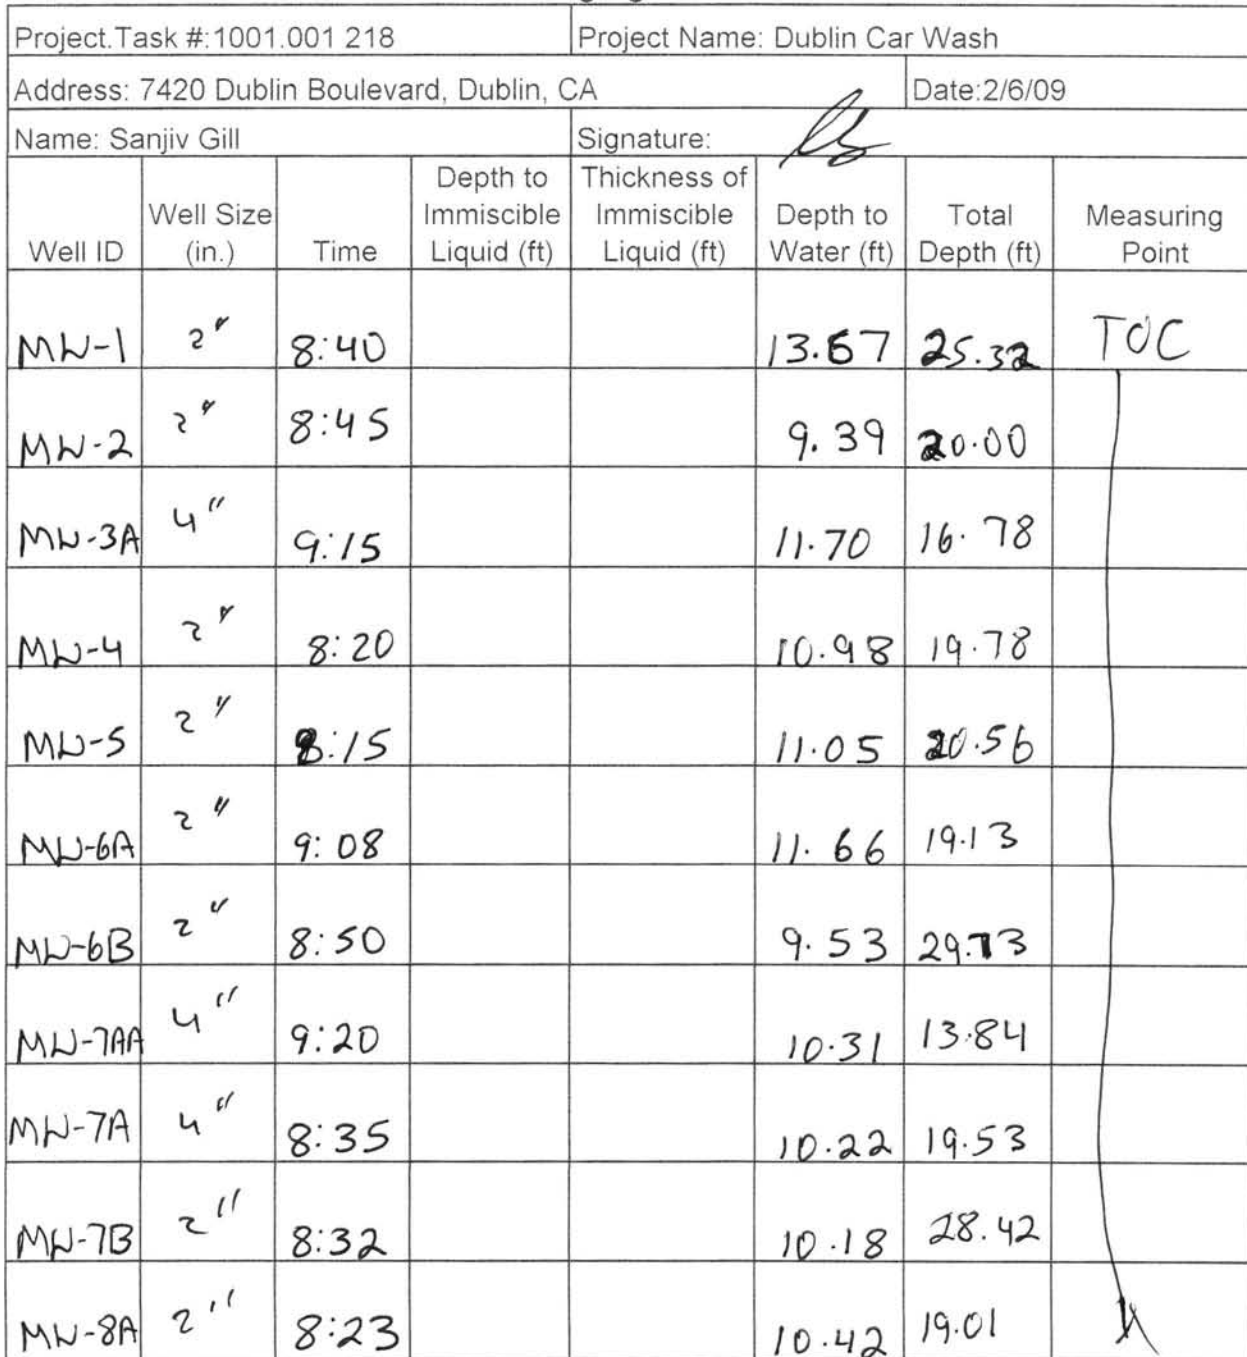 Project.Task #:1001.001 218 Project Name: Dublin Car Wash
Address: 7420 Dublin Boulevard, Dublin, CA Date:2/6/09
Name: Sanjiv Gill Signature:
Well ID Well Size (in.) Time Depth to Immiscible Liquid (ft) Thickness of Immiscible Liquid (ft) Depth to Water (ft) Total Depth (ft) Measuring Point
MW-1 2" 8:40 13.67 25.32 TOC
MW-2 2" 8:45 9.39 20.00
MW-3A 4" 9:15 11.70 16.78
MW-4 2" 8:20 10.98 19.78
MW-5 2" 8:15 11.05 20.56
MW-6A 2" 9:08 11.66 19.13
MW-6B 2" 8:50 9.53 29.73
MW-7AA 4" 9:20 10.31 13.84
MW-7A 4" 8:35 10.22 19.53
MW-7B 2" 8:32 10.18 28.42
MW-8A 2" 8:23 10.42 19.01